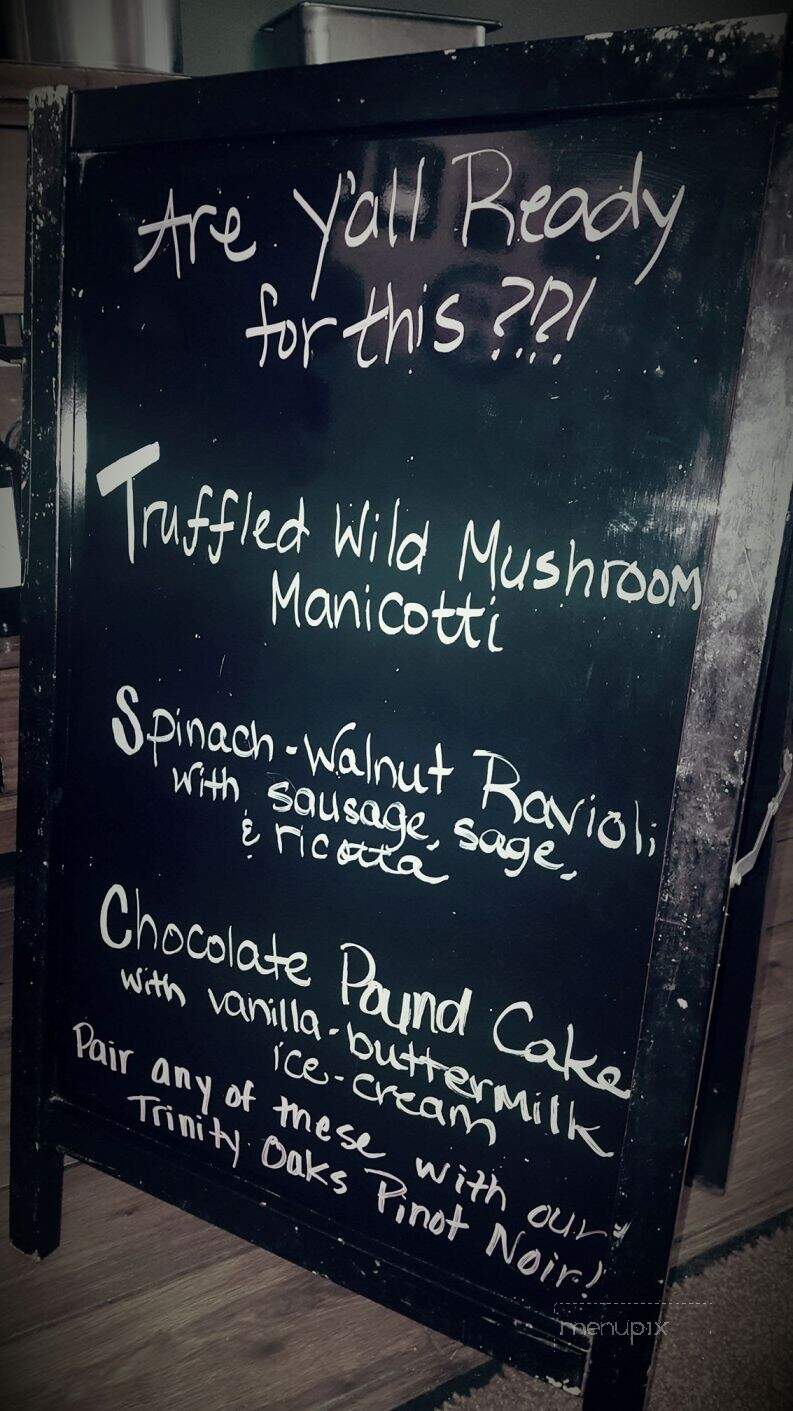 Are y'all Ready
for this ?!?!
Truffled Wild Mushroom
Manicotti
Spinach-Walnut Ravioli
with sausage, sage,
& ricotta
Chocolate Pound Cake
with vanilla-buttermilk
ice-cream
Pair any of these with our
Trinity Oaks Pinot Noir!
menupix